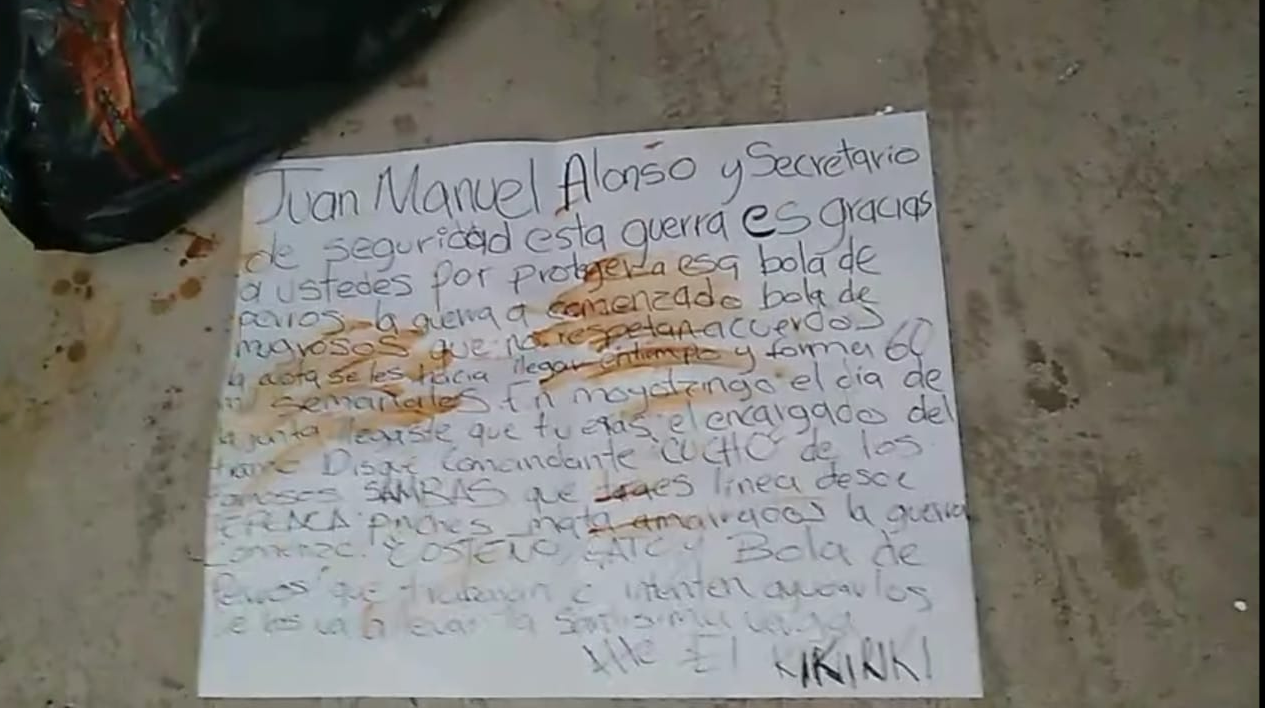 Juan Manuel Alonso y Secretario
de seguridad esta guerra es gracias
a ustedes por protegera esa bola de
perros la guerra a comenzado bola de
mugrosos que no respetan acuerdos
la cuota se les hacia llegar entiempo y forma 60
semanales En moyotzingo el dia de
la junta llegaste que tu eras el encargado del
Disque Comandante CUCHO de los
SAMBRAS que traes linea desde
pinches mata amarrados la guerra
COSTEÑO Bola de
Perros que trabajan e intenten ayudarlos
se los va a llevar la Santisima
Atte El KIRIRIKI